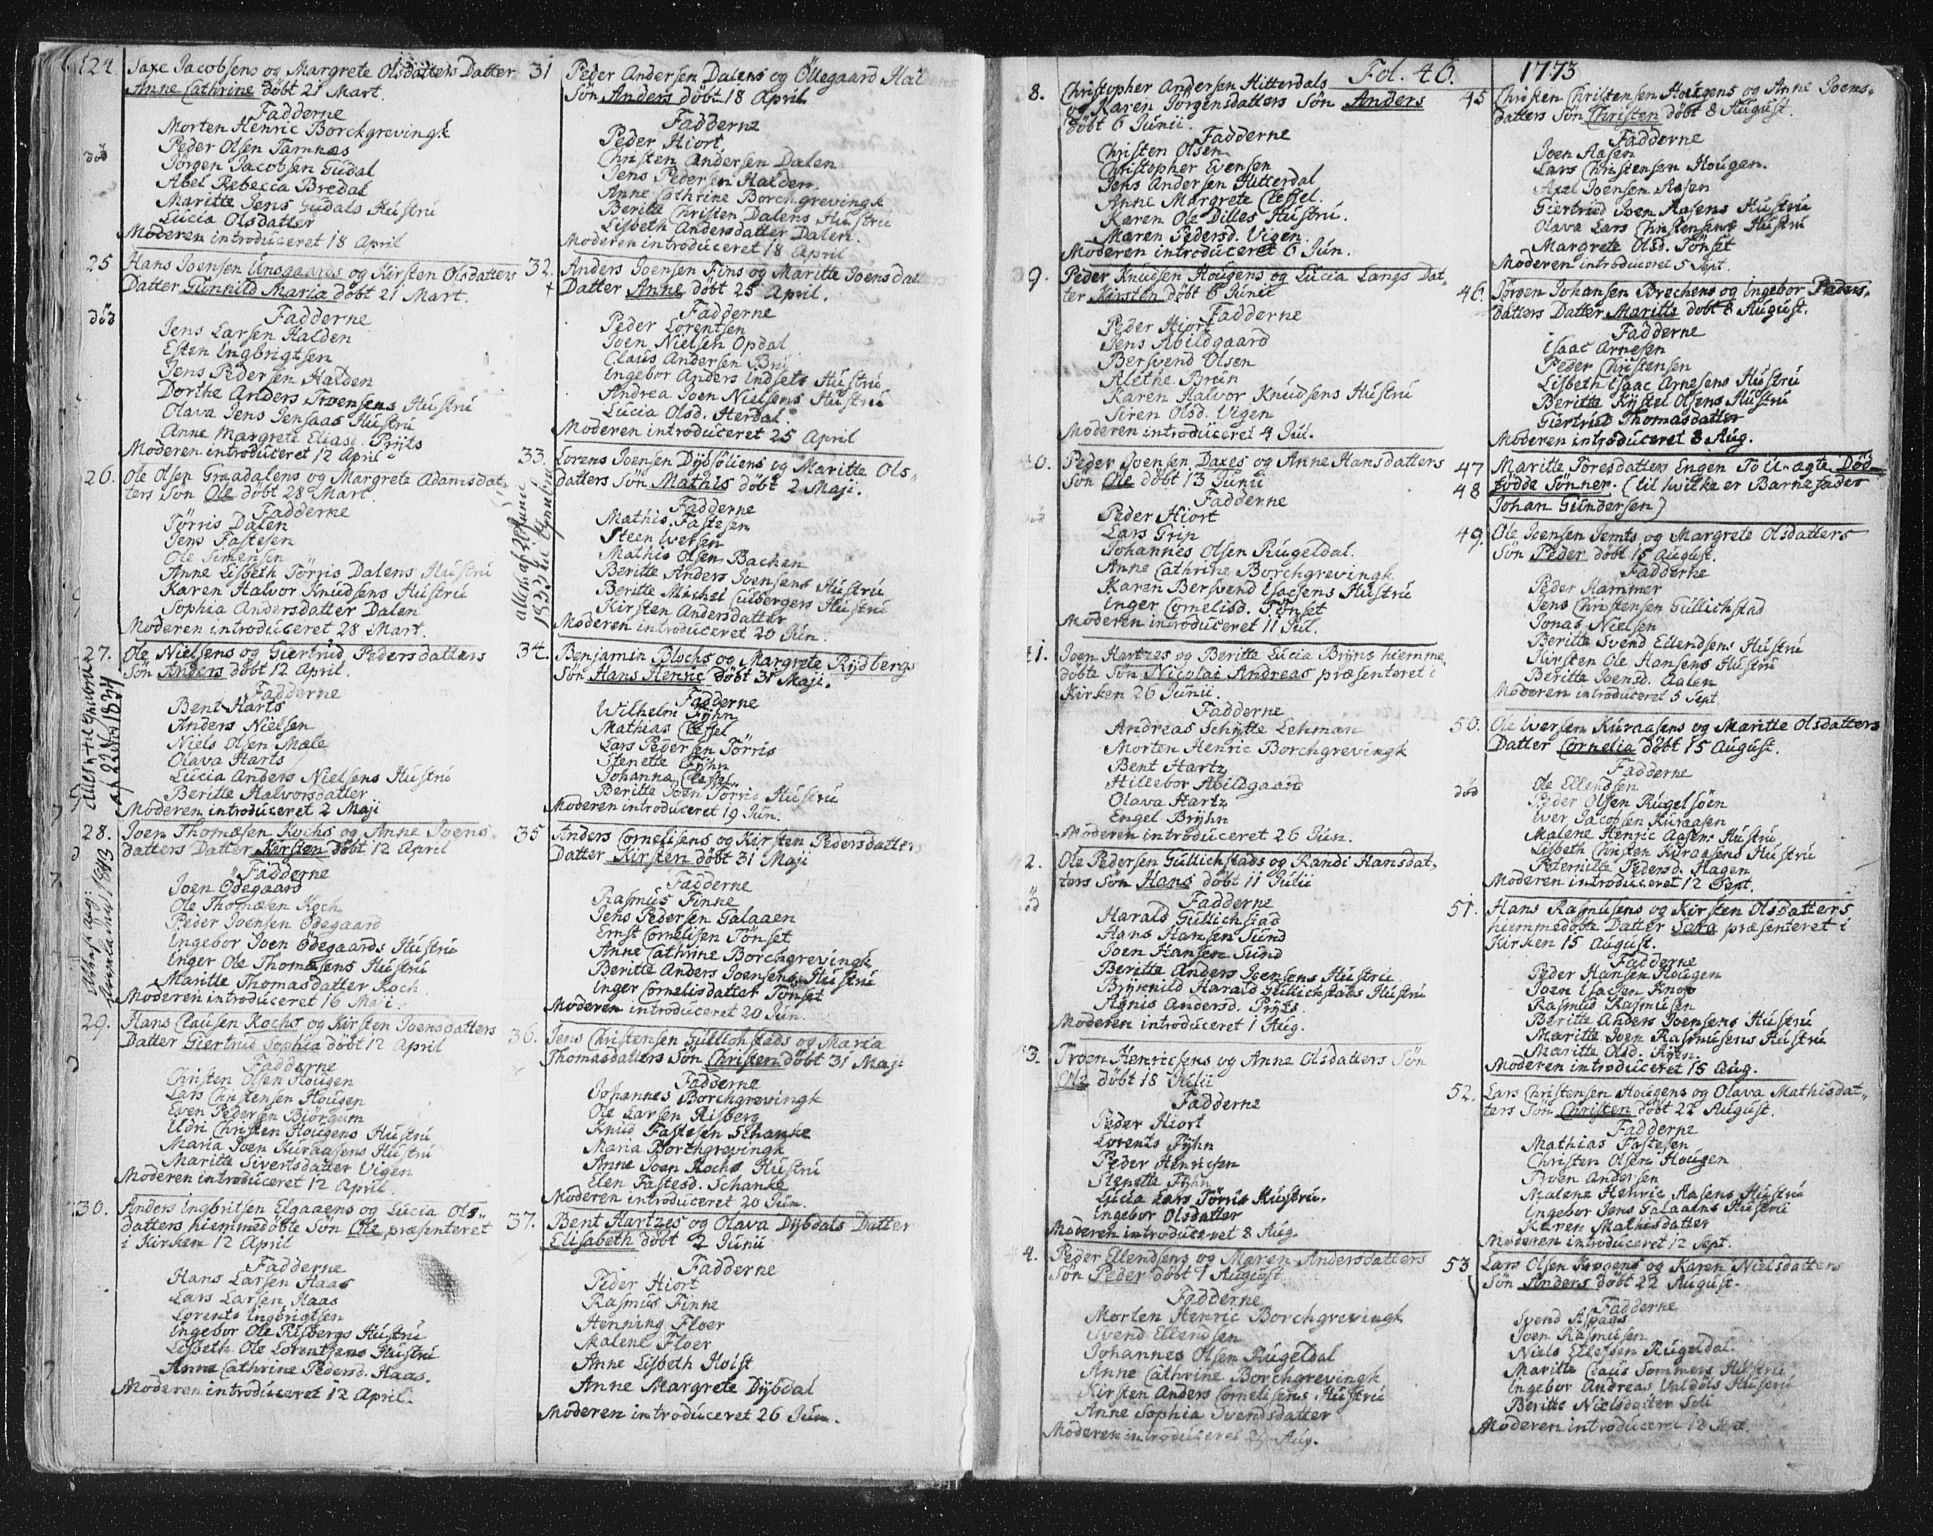 124. Saxe Jacobsens og Margrete Olsdatters Datter
Anne Cathrine döbt 21 Mart.
Fadderne
Morten Henric Borchgrevingk
Peder Olsen Tamnes
död
Jörgen Jacobsen Gudal
Abel Rebecca Bredal
Maritte Jens Gudals Hustrü
Lucia Olsdatter
Moderen introduceret 18 April
25 Hans Joensen Unsgaards og Kirsten Olsdatters
Datter Gunnild Maria döbt 21 Mart.
död
Fadderne
Jens Larsen Halden
Esten Ingbrigtsen
Jens Pedersen Halden
Dorthe Anders Troensens Hustrü
Olava Jens Jensaas Hustrü
Anne Margrete Eliasd. Prÿts
Moderen introduceret 12 April
26. Ole Olsen Graadalens og Margrete Adamsdat-
ters Sön Ole döbt 28 Mart.
Fadderne
Törris Dalen
Jens Fastesen
Ole Simensen
Anne Lisbeth Törris Dalens Hustrü
Karen Halvor Knudsens Hustrü
Sophia Andersdatter Dalen
Moderen introduceret 28 Mart.
27. Ole Nielsens og Giertrud Pedersdatters
Sön Anders döbt 12 April.
Fadderne
Bent Harts
Anders Nielsen
Niels Olsen Mæle
Olava Harts
Lucia Anders Nielsens Hustrü
Beritte Halvorsdatter
Moderen introduceret 2 Maji
28. Joen Thomæsen Kochs og Anne Joens-
datters Datter Kirsten döbt 12 April
Fadderne
Joen Ödegaard
Ole Thomæsen Koch
Peder Joensen Ödegaard
Ingebor Joen Ödegaards Hustrü
Inger Ole Thomæsens Hustrü
Maritte Thomasdatter Koch
Moderen introduceret 16 Maji.
29. Hans Clausen Kochs og Kirsten Joensdatters
Datter Giertrud Sophia döbt 12 April
Fadderne
Christen Olsen Hougen
Lars Christensen Hougen
Even Pedersen Biörgum
Udri Christen Hougens Hustrü
Maria Joen Kuraasens Hustrü
Maritte Sivertsdatter Vigen
Moderen introduceret 12 April
30. Anders Ingbritsen Elgaaens og Lucia Ols-
datters hiemmedöbte Sön Ole præsenteret
i Kirken 12 April
Fadderne
Hans Larsen Haas
Lars Larsen Haas
Lorents Ingbrigtsen
Ingebor Ole Risbergs Hustrü
Lisbeth Ole Lorentsens Hustrü
Anne Cathrine Pedersd. Haas.
Moderen introduceret 12 April.
31 Peder Andersen Dalens og Ödegaard
Sön Anders döbt 18 April
Fadderne
Peder Hiort,
Christen Andersen Dalen
Jens Pedersen Halden
Anne Cathrine Borchgrevingk
Beritte Christen Dalens Hustrü
Lisbeth Andersdatter Dalen.
Moderen introduceret 18 April
32. Anders Joensen Fins og Maritte Joensdatters
Datter Anne döbt 25 April.
Fadderne
Peder Lorentsen
Joen Nielsen Opdal
Claus Andersen Brÿ
Ingebor Anders Indsets Hustrü
Andrea Joen Nielsens Hustrü
Lucia Olsd. Herdal.
Moderen introduceret 25 April
33. Lorens Joensen Dÿbsöliens og Maritte Ols-
datters Sön Mathis döbt 2 Maji.
Fadderne
Mathis Fastesen
Steen Iversen
Mathis Olsen Bachen
Beritte Anders Joensens Hustrü
Beritte Michel Culbergers Hustrü
Kirsten Andersdatter
Moderen introduceret 20 Jun.
34. Benjamin Blochs og Margrete Rÿdbergs
Sön Hans Henric döbt 31 Maji.
Fadderne
Wilhelm Fÿhn
Mathias Clessel
Lars Pedersen Törris
Stenette Fÿhn
Johanna Clessel
Beritte Joen Törris Hustrü
Moderen introduceret 19 Jun.
35 Anders Cornelisens og Kirsten Pedersdatters
Datter Kirsten döbt 31 Maji
Fadderne
Rasmus Finne
Jens Pedersen Galaaen
Ernst Cornelisen Tönset
Anne Cathrine Borchgrevingk
Beritte Anders Joensens Hustrü
Inger Cornelisdatter Tönset
Moderen introduceret 20 Jun.
36. Jens Christensen Gullichstads og Maria
Thomasdatters Sön Christen döbt 31 Maji
Fadderne
Johannes Borchgrevingk
Ole Larsen Risberg
Knud Fastesen Schanke
Maria Borchgrevingk
Anne Joen Kochs Hustrü
Elen Fastesd. Schanke
Moderen introduceret 20 Jun.
37. Bent Hartzes og Olava Dÿbdals Datter
Elisabeth döbt 2 Junii
Fadderne
Peder Hiort
Rasmus Finne
Henning Floer
Malene Floer
Anne Lisbeth Hoist
Anne Margrete Dÿbdal
Moderen introduceret 26 Jun.
Fol. 46. 1773
8. Christopher Andersen Hitterdals
og Karen Jörgensdatters Sön Anders
döbt 6 Junii.
Fadderne
Christen Olsen
Christopher Evensen
Jens Andersen Hitterdal
Anne Margrete Clessel.
Karen Ole Dilles Hustrü.
Maren Pedersd. Vigen.
Moderen introduceret 6 Jun.
9. Peder Knudsen Hougens og Lucia Langs Dat-
ter Kirsten döbt 6 Junii
Fadderne
Peder Hiort
Jens Abildgaard
Bersvend Olsen
Alethe Brun
Karen Halvor Knudsens Hustrü
Siren Olsd. Vigen
Moderen introduceret 4 Jul.
40. Peder Joensen Daxes og Anne Hansdatters
Sön Ole döbt 13 Junii
Fadderne
Peder Hiort
Lars Grip
Johannes Olsen Rugeldal.
Anne Cathrine Borchgrevingk
Karen Bersvend Isacsens Hustrü
Inger Cornelisd. Tönset
Moderen introduceret 11 Jul.
41. Joen Hartzes og Beritte Lucia Brÿns hiemme-
döbte Sön Nicolai Andreas præsenteret i
Kirken 26 Junii.
Fadderne
Andreas Schÿtte Lehman
Morten Henric Borchgrevingk
Bent Hartz
Hillebor Abildgaard
Olava Hartz
Engel Brÿhn
Moderen introduceret 26 Jun.
42. Ole Pedersen Gullichstads og Randi Hansdat-
ters Sön Hans döbt 11 Julii
Fadderne
Harald Gullichstad
Hans Hansen Sund
Joen Hansen Sund
Beritte Anders Joensens Hustrü
Brÿnnild Harald Gullichstads Hustrü
Agnis Andersd. Prÿts.
Moderen introduceret 1 Aug.
43. Troen Henricsens og Anne Olsdatters Sön
Ole döbt 18 Julii
Fadderne
Peder Hiort
Lorents Fÿhn
Peder Henricsen
Stenette Fÿhn
Lucia Lars Törris Hustrü.
Ingebor Olsdatter
Moderen introduceret 8 Aug.
4. Peder Ellendsens og Maren Andersdatters
Sön Peder döbt 1 August
Fadderne
Morten Henric Borchgrevingk
Svend Ellendsen
Johannes Olsen Rugeldal
Anne Cathrine Borchgrevingk
Kirsten Anders Cornelisens Hustrü
Anne Sophia Svendsdatter
Moderen introduceret Aug.
45 Christen Christensen Hougens og Anne Joens-
datters Sön Christen döbt 8 August.
Fadderne
Joen Aasen
Lars Christensen Hougen.
Axel Joensen Aasen
Giertrud Joen Aasens Hustrü
Olava Lars Christensens Hustrü
Margrete Olsd. Tönset
Moderen introduceret 5 Sept.
46. Jörgen Johansen Brechens og Ingebor Peders-
datters Datter Maritte döbt 8 August.
Fadderne
Isaac Arnesen
Peder Christensen
Lisbeth Isaac Arnesens Hustrü
Beritte Kÿstel Olsens Hustrü
Giertrud Thomasdatter
Moderen introduceret 8 Aug.
47 Maritte Toresdatters Engen To U-ægte Död-
48 födde Sönner. (til hvilke er Barnefader
Johan Gundersen)
49. Ole Joensen Jemts og Margrete Olsdatters
Sön Peder döbt 15 August.
Fadderne
Peder Hammer
Jens Christensen Gullichstad
Jonas Nielsen
Beritte Svend Ellendsens Hustrü
Kirsten Ole Hansens Hustrü
Beritte Joensd. Aalen
Moderen introduceret 5 Sept.
50. Ole Iversen Kuraasens og Maritte Olsdatters
Datter Cornelia döbt 15 August.
Fadderne
död
Ole Ellensen
Peder Olsen Rugelsöen
Iver Jacobsen Kuraasen
Malene Henric Aasens Hustrü
Lisbeth Christen Kuraasens Hustrü
Peternille Pedersd. Hagen
Moderen introduceret 12 Sept.
51. Hans Rasmusens og Kirsten Olsdatters
hiemmedöbte Datter Sara præsenteret i
Kirken 15 August.
Fadderne
Peder Hansen Hougen
Joen Isacsen Knop
Rasmus Rasmusen
Beritte Anders Joensens Hustrü
Maritte Joen Rasmusens Hustrü
Maritte Olsd.
Moderen introduceret 15 Aug.
52. Lars Christensen Hougens og Olava Mathisdat-
ters Sön Christen döbt 22 August.
Fadderne
Mathias Fastesen
Christen Olsen Hougen
Troen Andersen
Malene Henric Aasens Hustrü
Ingebor Jens Galaaens Hustrü
Karen Mathisdatter
Moderen introduceret 12 Sept.
53 Lars Olsen og Karen Nielsdatters
Sön Anders döbt 22 August.
Fadderne
Svend Aspaas
Joen Rasmusen
Niels Ellefsen Rugeldal.
Maritte Claus Sommers Hustrü
Ingebor Andreas Hustrü
Beritte Nielsdatter
Moderen introduceret 12